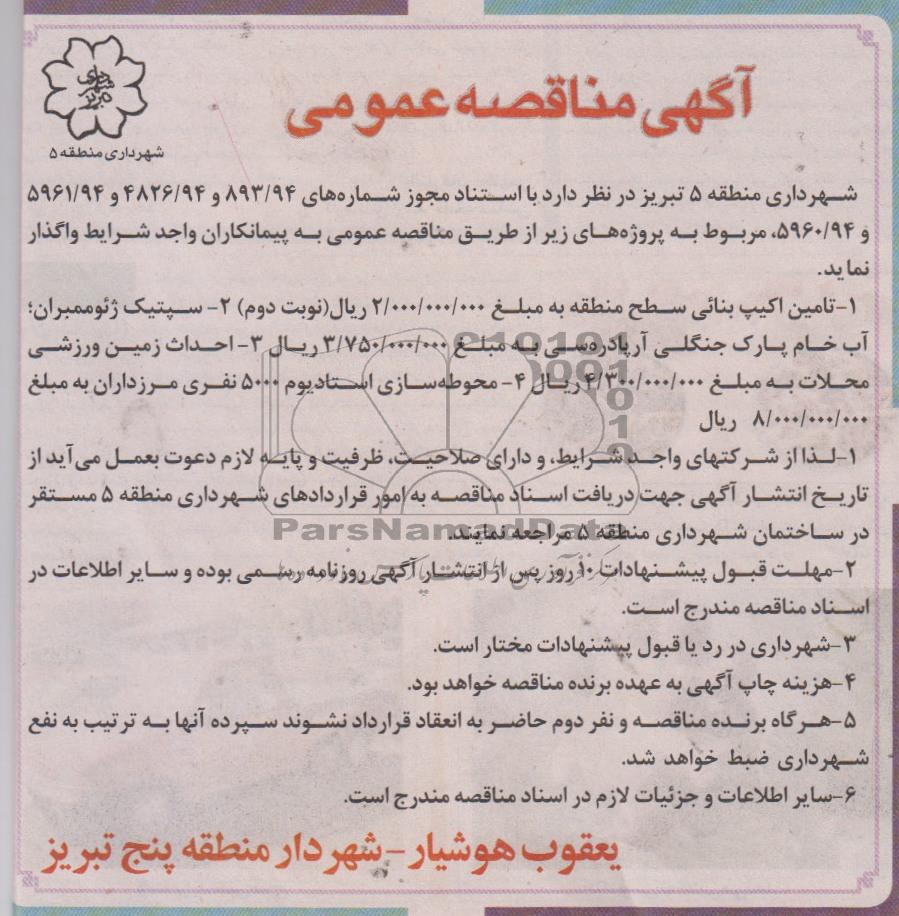 آگهی مناقصه عمومی
شهرداری تبریز
شهرداری منطقه ۵
شهرداری منطقه ۵ تبریز در نظر دارد با استناد مجوز شماره‌های ۸۹۳/۹۴ و ۴۸۲۶/۹۴ و ۵۹۶۱/۹۴
و ۵۹۶۰/۹۴، مربوط به پروژه‌های زیر از طریق مناقصه عمومی به پیمانکاران واجد شرایط واگذار
نماید.
۱-تامین اکیپ بنائی سطح منطقه به مبلغ ۲/۰۰۰/۰۰۰/۰۰۰ ریال(نوبت دوم) ۲- سپتیک ژئوممبران؛
آب خام پارک جنگلی آرپادره‌سی به مبلغ ۳/۷۵۰/۰۰۰/۰۰۰ ریال ۳- احداث زمین ورزشی
محلات به مبلغ ۴/۳۰۰/۰۰۰/۰۰۰ ریال ۴- محوطه‌سازی استادیوم ۵۰۰۰ نفری مرزداران به مبلغ
۸/۰۰۰/۰۰۰/۰۰۰ ریال
۱-لذا از شرکتهای واجد شرایط، و دارای صلاحیت، ظرفیت و پایه لازم دعوت بعمل می‌آید از
تاریخ انتشار آگهی جهت دریافت اسناد مناقصه به امور قراردادهای شهرداری منطقه ۵ مستقر
در ساختمان شهرداری منطقه ۵ مراجعه نمایند.
ParsNamadData
۲-مهلت قبول پیشنهادات ۱۰ روز پس از انتشار آگهی روزنامه رسمی بوده و سایر اطلاعات در
اسناد مناقصه مندرج است.
۳-شهرداری در رد یا قبول پیشنهادات مختار است.
۴-هزینه چاپ آگهی به عهده برنده مناقصه خواهد بود.
۵-هرگاه برنده مناقصه و نفر دوم حاضر به انعقاد قرارداد نشوند سپرده آنها به ترتیب به نفع
شهرداری ضبط خواهد شد.
۶-سایر اطلاعات و جزئیات لازم در اسناد مناقصه مندرج است.
یعقوب هوشیار-شهردار منطقه پنج تبریز